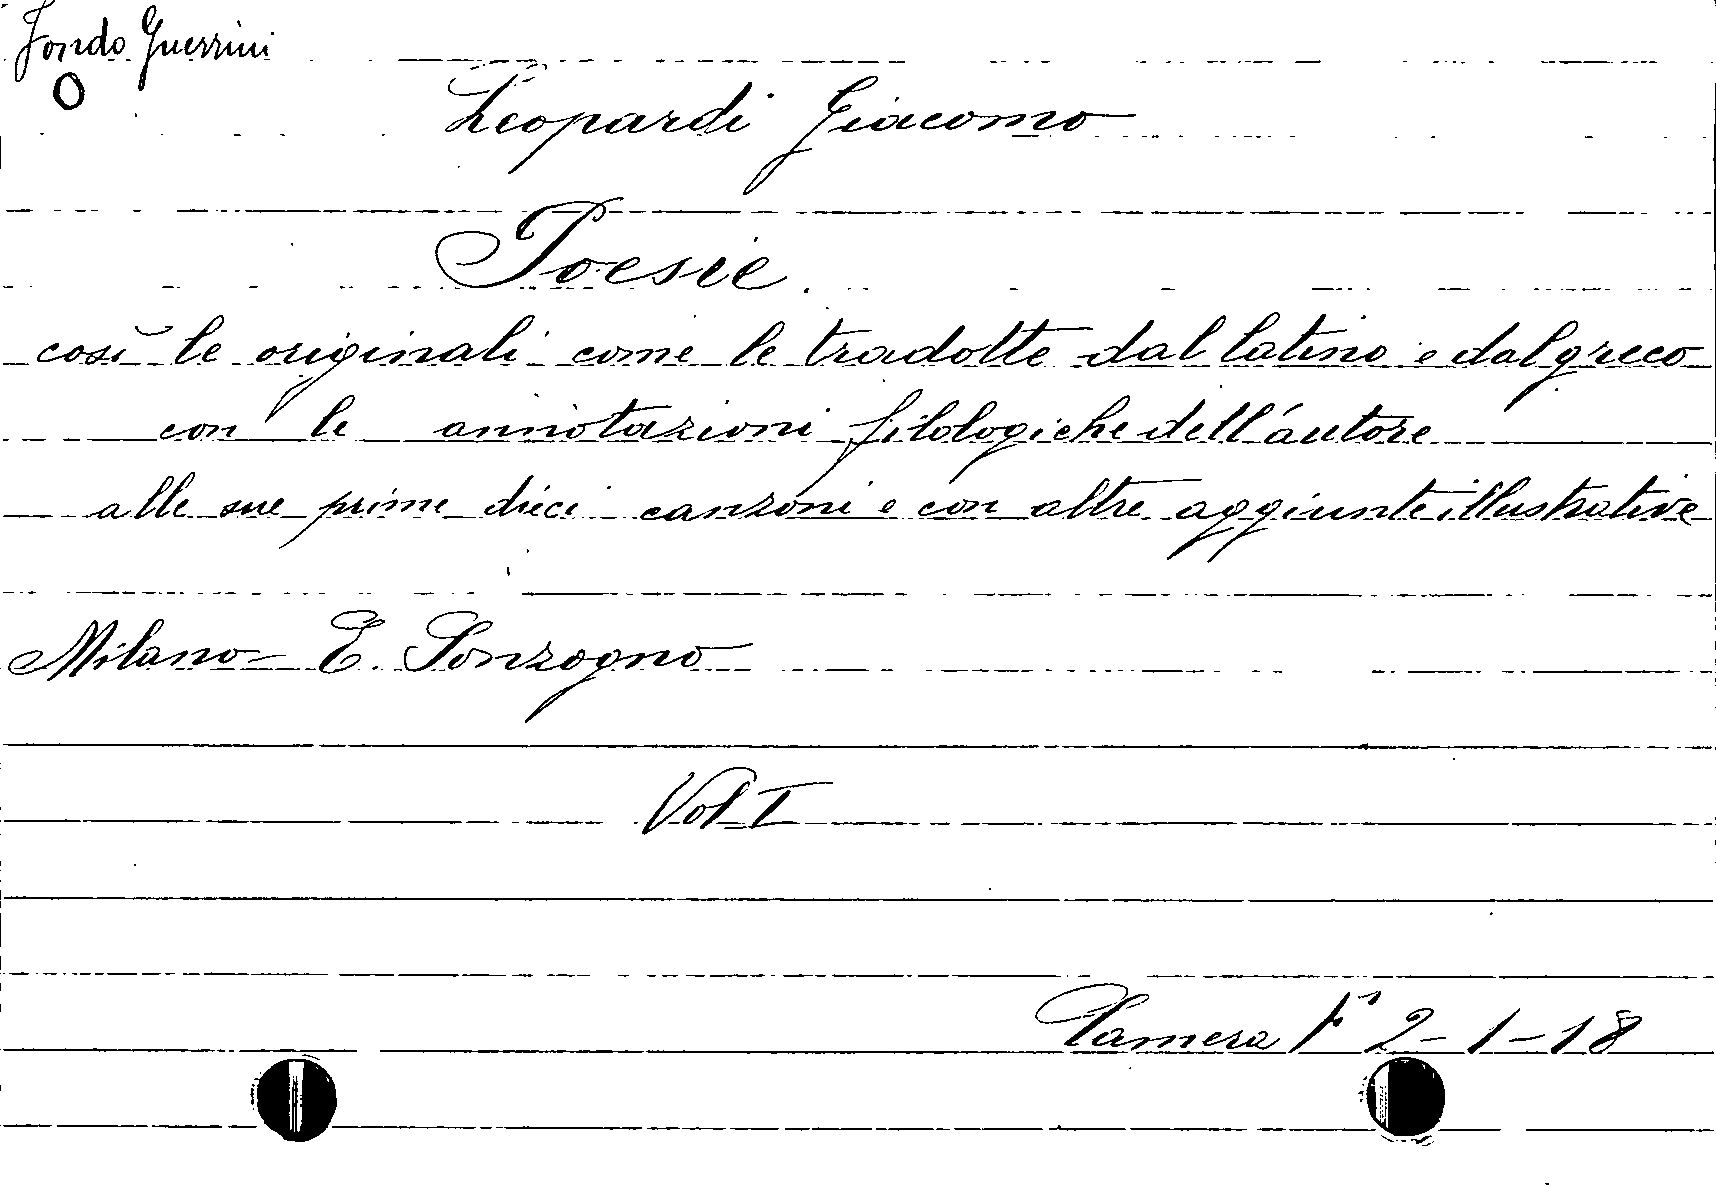 Fondo Guerrini
O
Leopardi Giacomo
Poesie.
così le originali come le tradotte dal latino e dal greco
con le annotazioni filologiche dell'autore
alle sue prime dieci canzoni e con altre aggiunte illustrative
Milano - E. Sonzogno
Vol I
Camera F 2-1-18